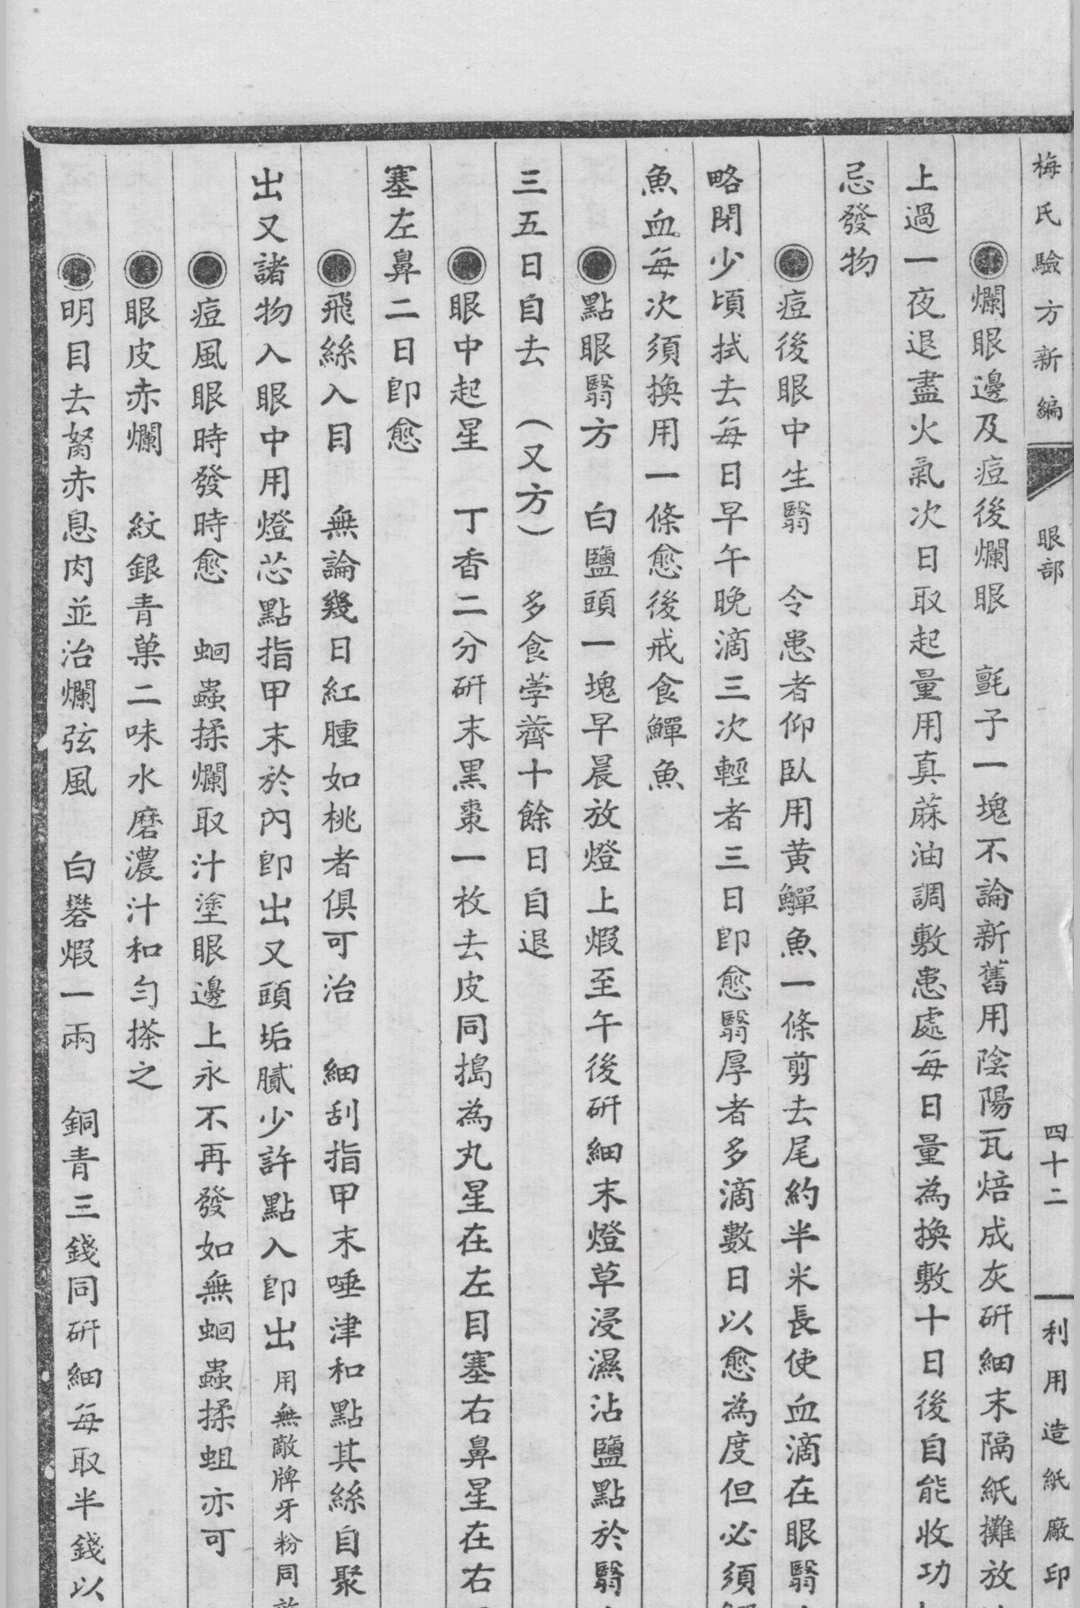 梅氏驗方新編 眼部 四十二 利用造紙廠印
◉爛眼邊及痘後爛眼 氈子一塊不論新舊用陰陽瓦焙成灰研細末隔紙攤放
上過一夜退盡火氣次日取起量用真蔴油調敷患處每日量為換敷十日後自能收功
忌發物
◉痘後眼中生翳 令患者仰臥用黄鱓魚一條剪去尾約半米長使血滴在眼翳
略閉少頃拭去每日早午晚滴三次輕者三日卽愈翳厚者多滴數日以愈為度但必須
魚血每次須換用一條愈後戒食鱓魚
◉點眼翳方 白鹽頭一塊早晨放燈上煆至午後研細末燈草浸濕沾鹽點於翳
三五日自去 (又方) 多食荸薺十餘日自退
◉眼中起星 丁香二分研末黑棗一枚去皮同搗為丸星在左目塞右鼻星在右
塞左鼻二日卽愈
◉飛絲入目 無論幾日紅腫如桃者俱可治 細刮指甲末唾津和點其絲自聚
出又諸物入眼中用燈芯點指甲末於內卽出又頭垢膩少許點入卽出用無敵牌牙粉同
◉痘風眼時發時愈 蛔蟲揉爛取汁塗眼邊上永不再發如無蛔蟲揉蛆亦可
◉眼皮赤爛 紋銀青菓二味水磨濃汁和勻搽之
◉明目去努赤息肉並治爛弦風 白礬煆一兩 銅青三錢同研細每取半錢以